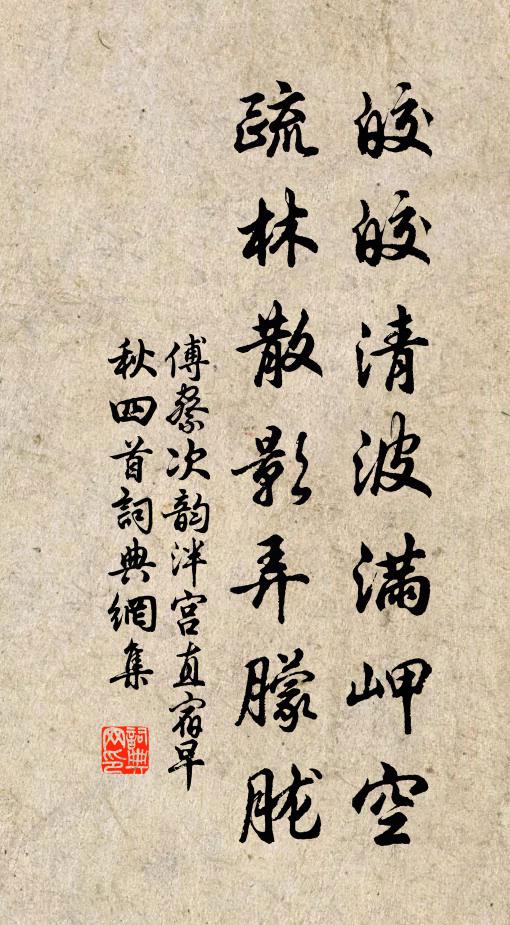 皎皎清波滿岬空
疏林散影弄朦朧
傅察次韵泮宮直宿早
秋四首詞典網集
詞典
网印